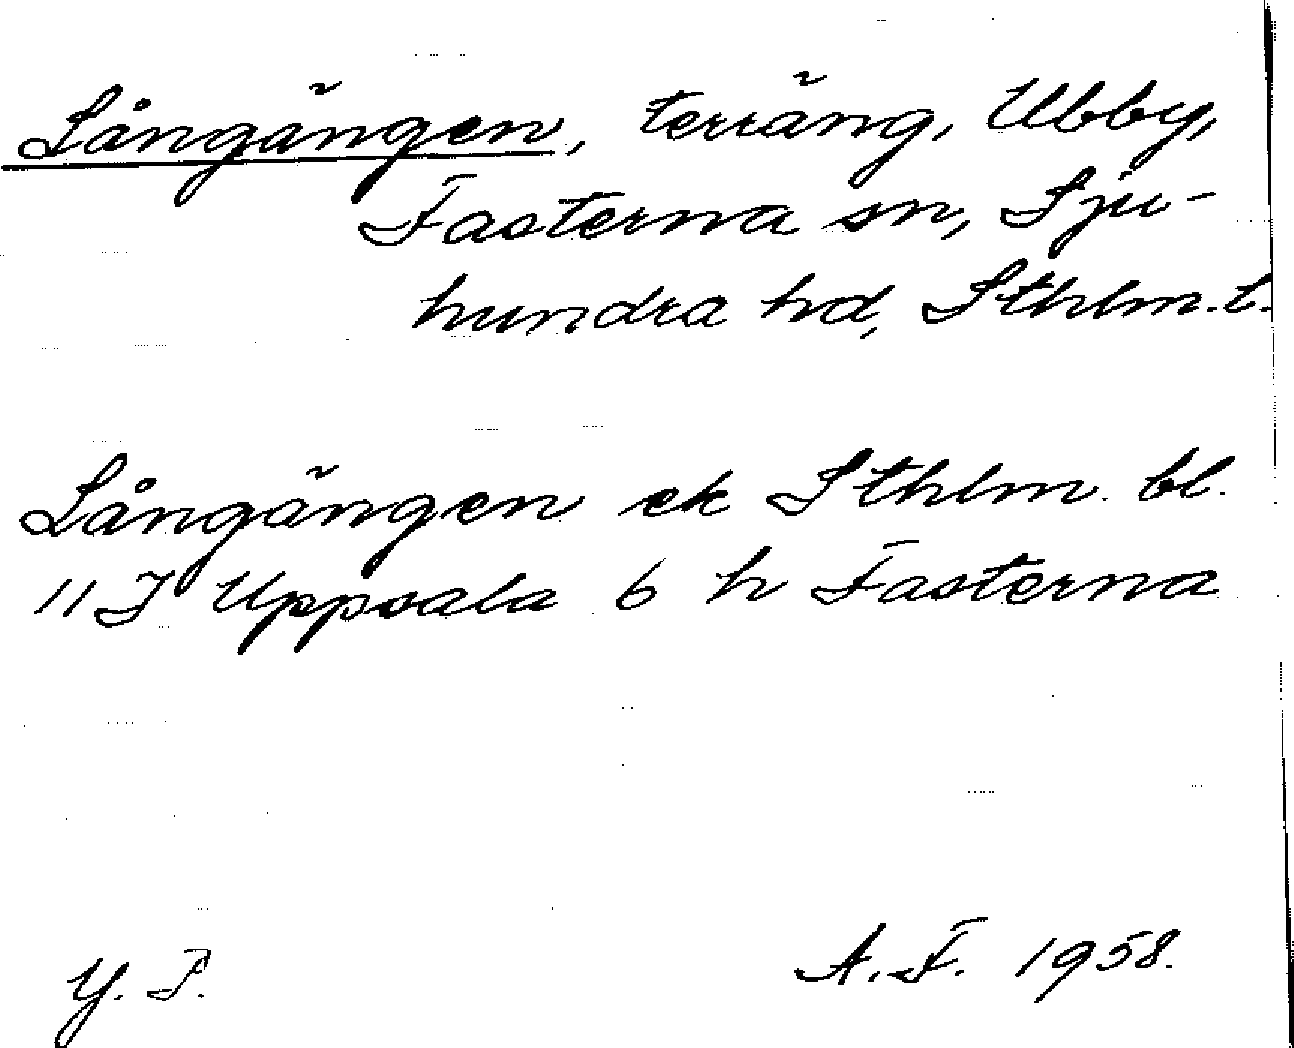 Långängen, terräng, Ubby,
Fasterna sn, Sju-
hundra hd, Sthlm. l.
Långängen ek Sthlm. bl.
11 I Uppsala 6 h Fasterna
A. F. 1958.